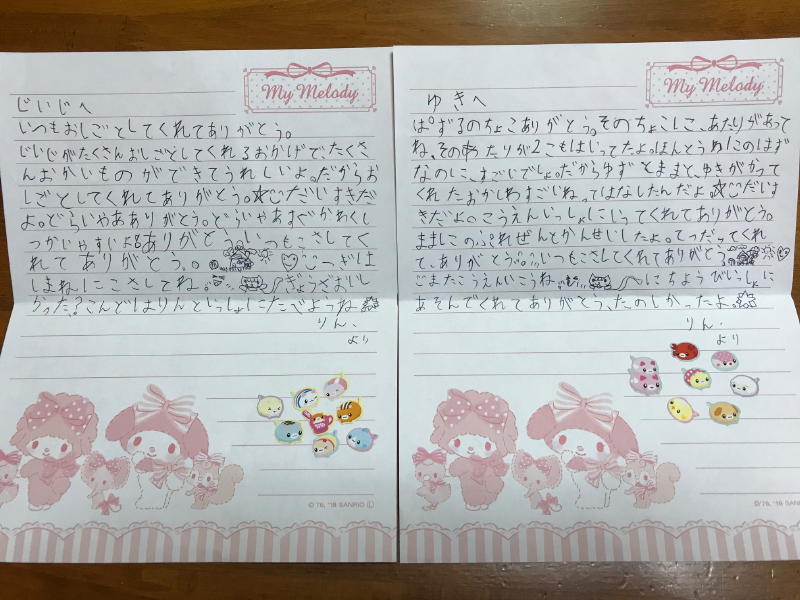 My Melody
じいじへ
いつもおしごとしてくれてありがとう。
じいじがたくさんおしごとしてくれるおかげで、たくさ
んおかいものができてうれしいよ。だからお
しごとしてくれてありがとう。だいすきだ
よ。どらいやあありがとう。どらいやあすぐかわくし
つかいやすいよ ありがとう いつもこさしてく
れてありがとう。こっぎは
しまねにこさしてね。ぎょうざおいし
かった？こんどはりんといっしょにたべようね
りん、
より
© '76, '18 SANRIO Ⓛ
My Melody
ゆきへ
ぱずるのちょこありがとう。そのちょこに、あたりがあって
ね、そのあたりが2こもはいってたよ。ほんとうわ1このはず
なのに、すごいでしょ。だからゆずとままと、ゆきがかって
くれたおかしわすごいねってはなしたんだよ。だいす
きだよ。こうえんいっしょにいってくれてありがとう。
ままにのぷれぜんとかんせいしたよ。てつだってくれ
て、ありがとう。いつもこさしてくれてありがとう
ごまたこうえんいこうね にちようびいっしょに
あそんでくれてありがとう、たのしかったよ。
りん、
より
© '76, '18 SANRIO